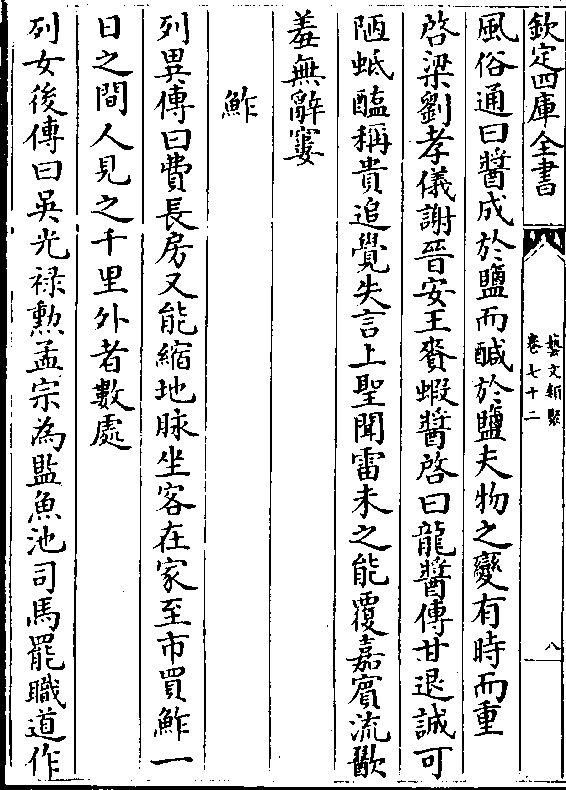 欽定四庫全書
藝文類聚
卷七十二
八
風俗通曰醬成於鹽而醎於鹽夫物之變有時而重
啓梁劉孝儀謝晉安王賚蝦醬啓曰龍醬傳甘退誠可
陋蚳醢稱貴追覺失言上聖聞雷未之能覆嘉賔流歠
羞無辭窶
鮓
列異傳曰費長房又能縮地脉坐客在家至市買鮓一
日之間人見之千里外者數處
列女後傳曰吳光禄勲孟宗為監魚池司馬罷職道作